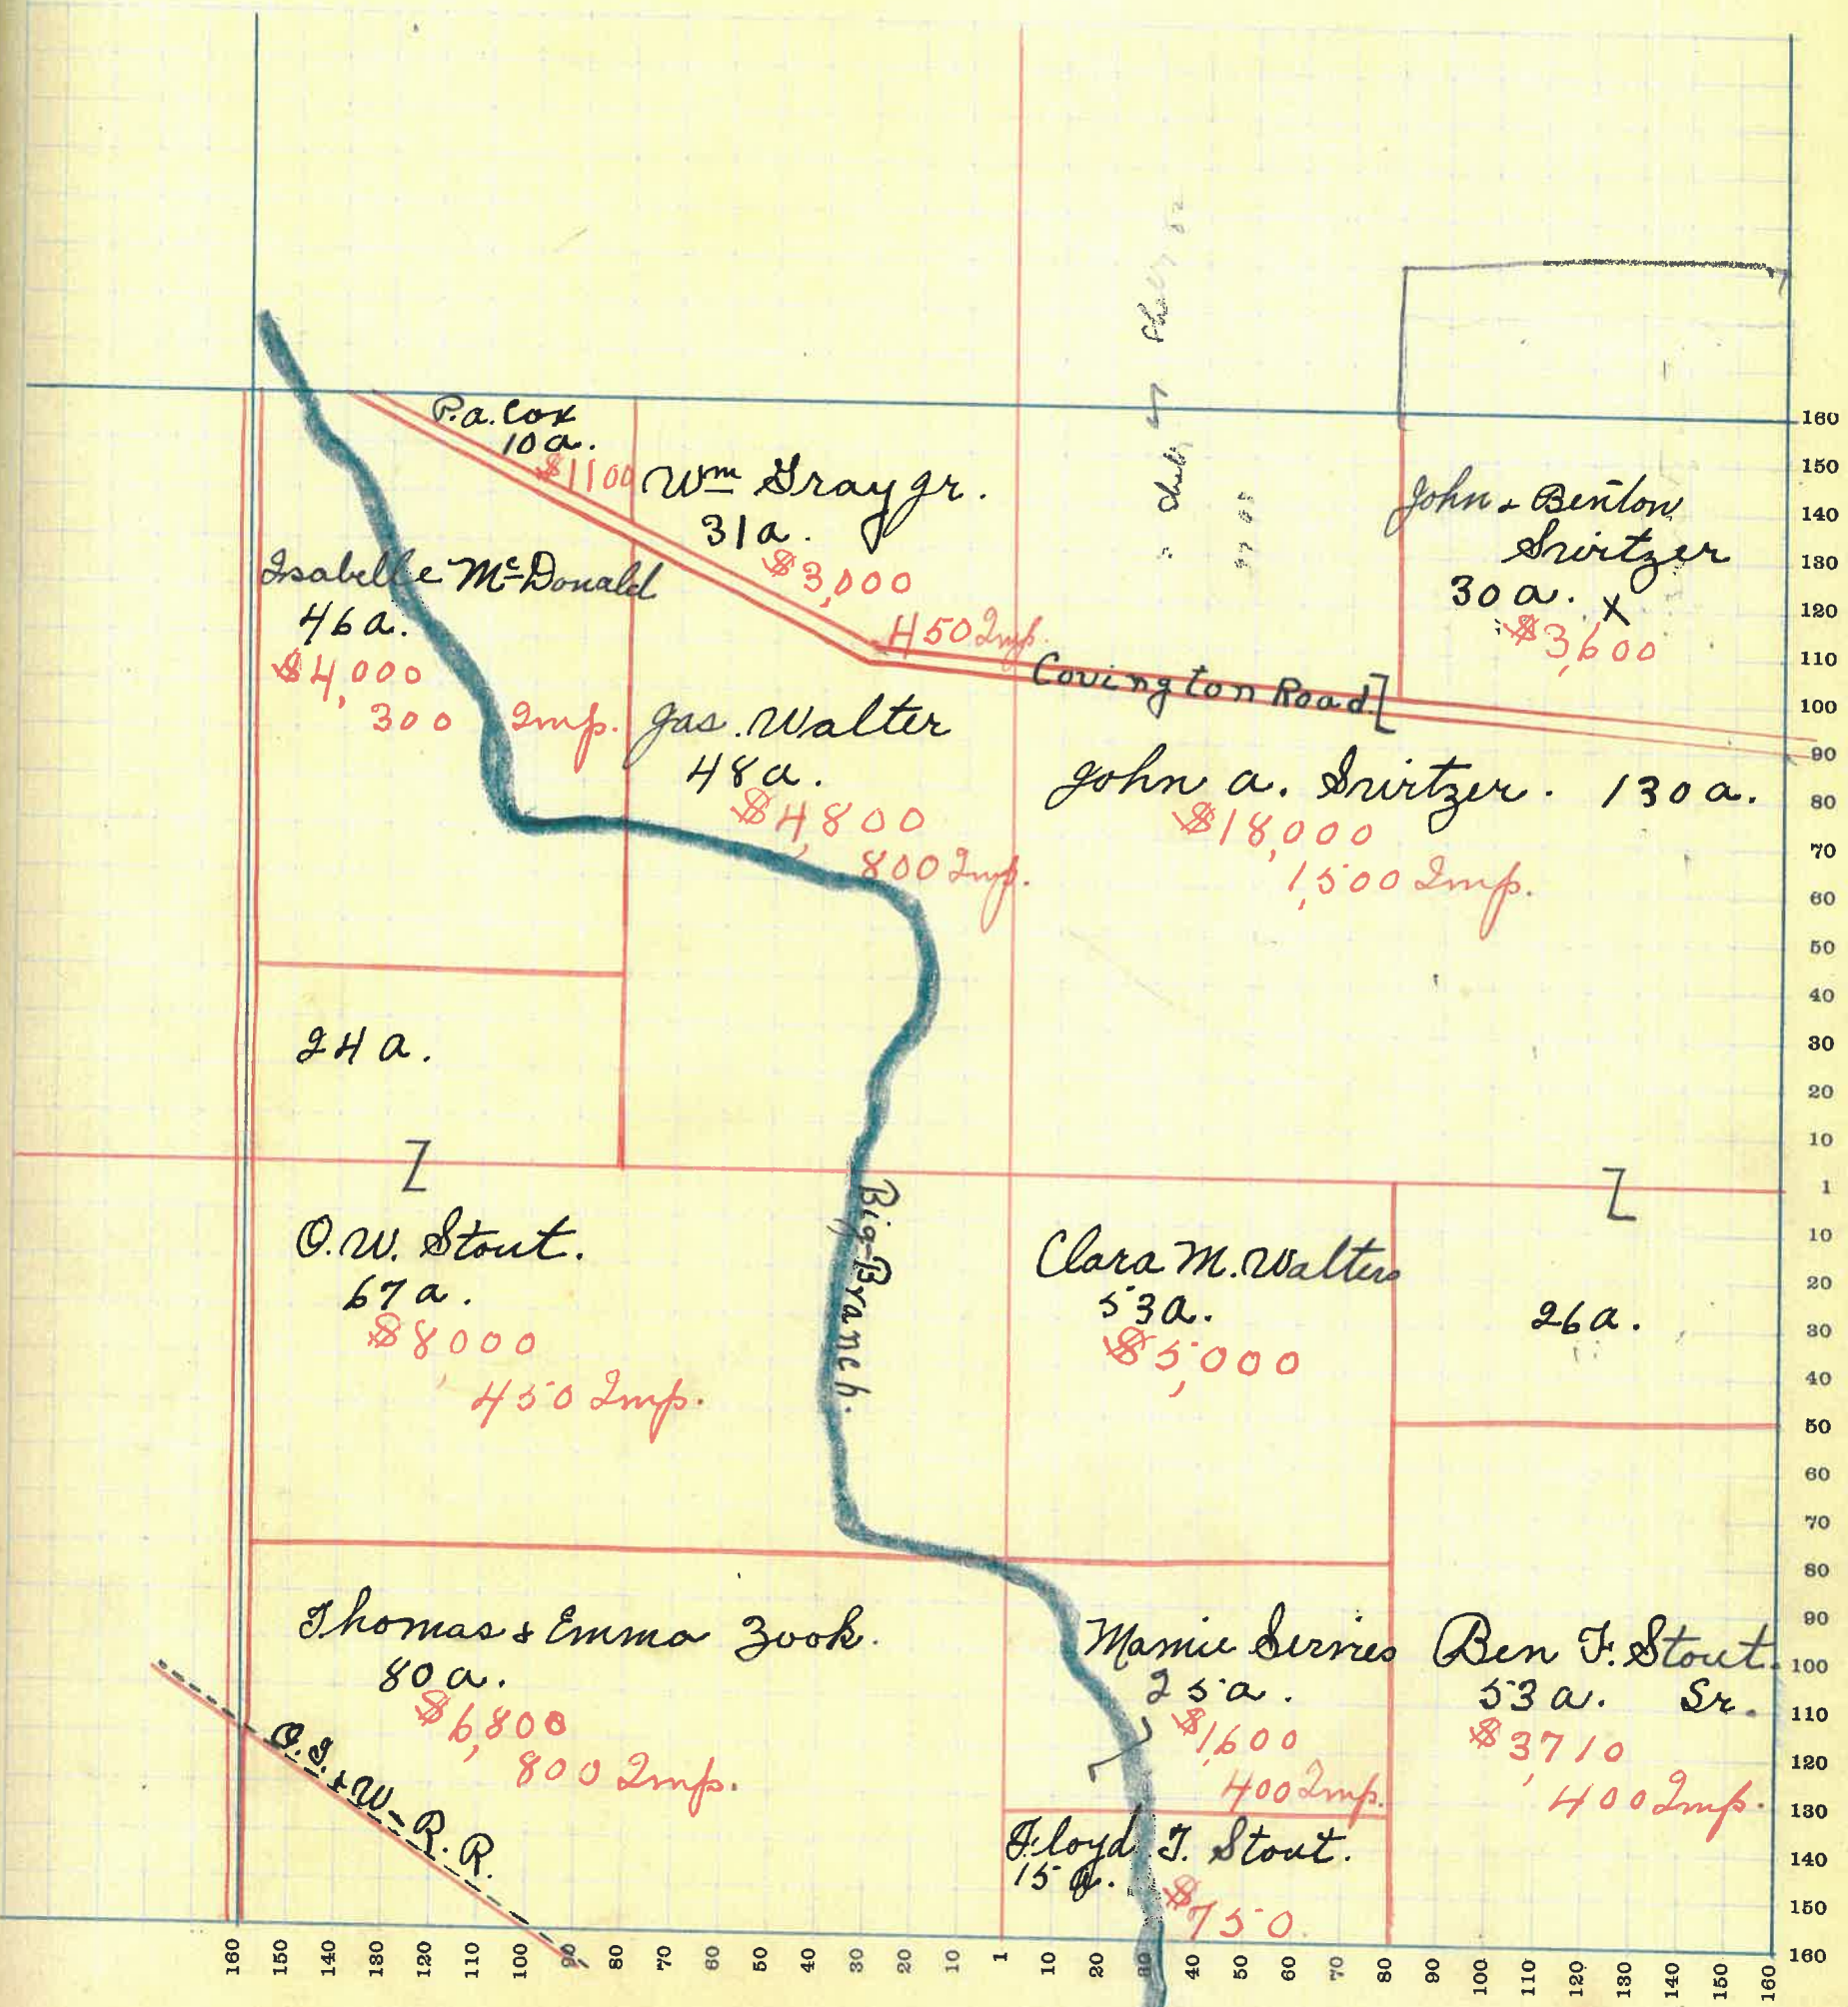 P.a. Cox
10a.
$1100
Wm Gray Jr.
31a.
$3,000
450 Imp.
John & Benton
Swirtzer
30a. x
$3,600
Isabelle McDonald
46a.
$4,000
300 Imp.
Jas. Walter
48a.
$4,800
800 Imp.
Covington Road
John a. Swirtzer. 130a.
$18,000
1,500 Imp.
24a.
Big-Branch.
O.W. Stout.
67a.
$8,000
450 Imp.
Clara M. Walters
53a.
$5,000
26a.
Thomas & Emma Zook.
80a.
$6,800
800 Imp.
O.I. & W- R.R.
Mamie Servies
25a.
$1,600
400 Imp.
Ben F. Stout.
53a. Sr.
$3,710
400 Imp.
Floyd T. Stout.
15a.
$750
160
150
140
130
120
110
100
90
80
70
60
50
40
30
20
10
1
10
20
30
40
50
60
70
80
90
100
110
120
130
140
150
160
160 150 140 130 120 110 100 90 80 70 60 50 40 30 20 10 1 10 20 30 40 50 60 70 80 90 100 110 120 130 140 150 160